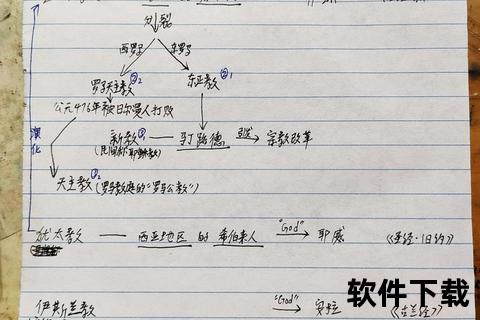 分裂
西罗马 东罗马
罗马天主教②₂ 东正教②₁
公元476年被日耳曼人打败
新教③ — 马丁路德 → 宗教改革
演化
天主教②₂(罗马教庭的"罗马公教")
犹太教 — 西亚地区 的 希伯来人 "God"→ 耶威 《圣经·旧约》
伊斯兰教 "God"→ 安拉 《古兰经》
软件下载